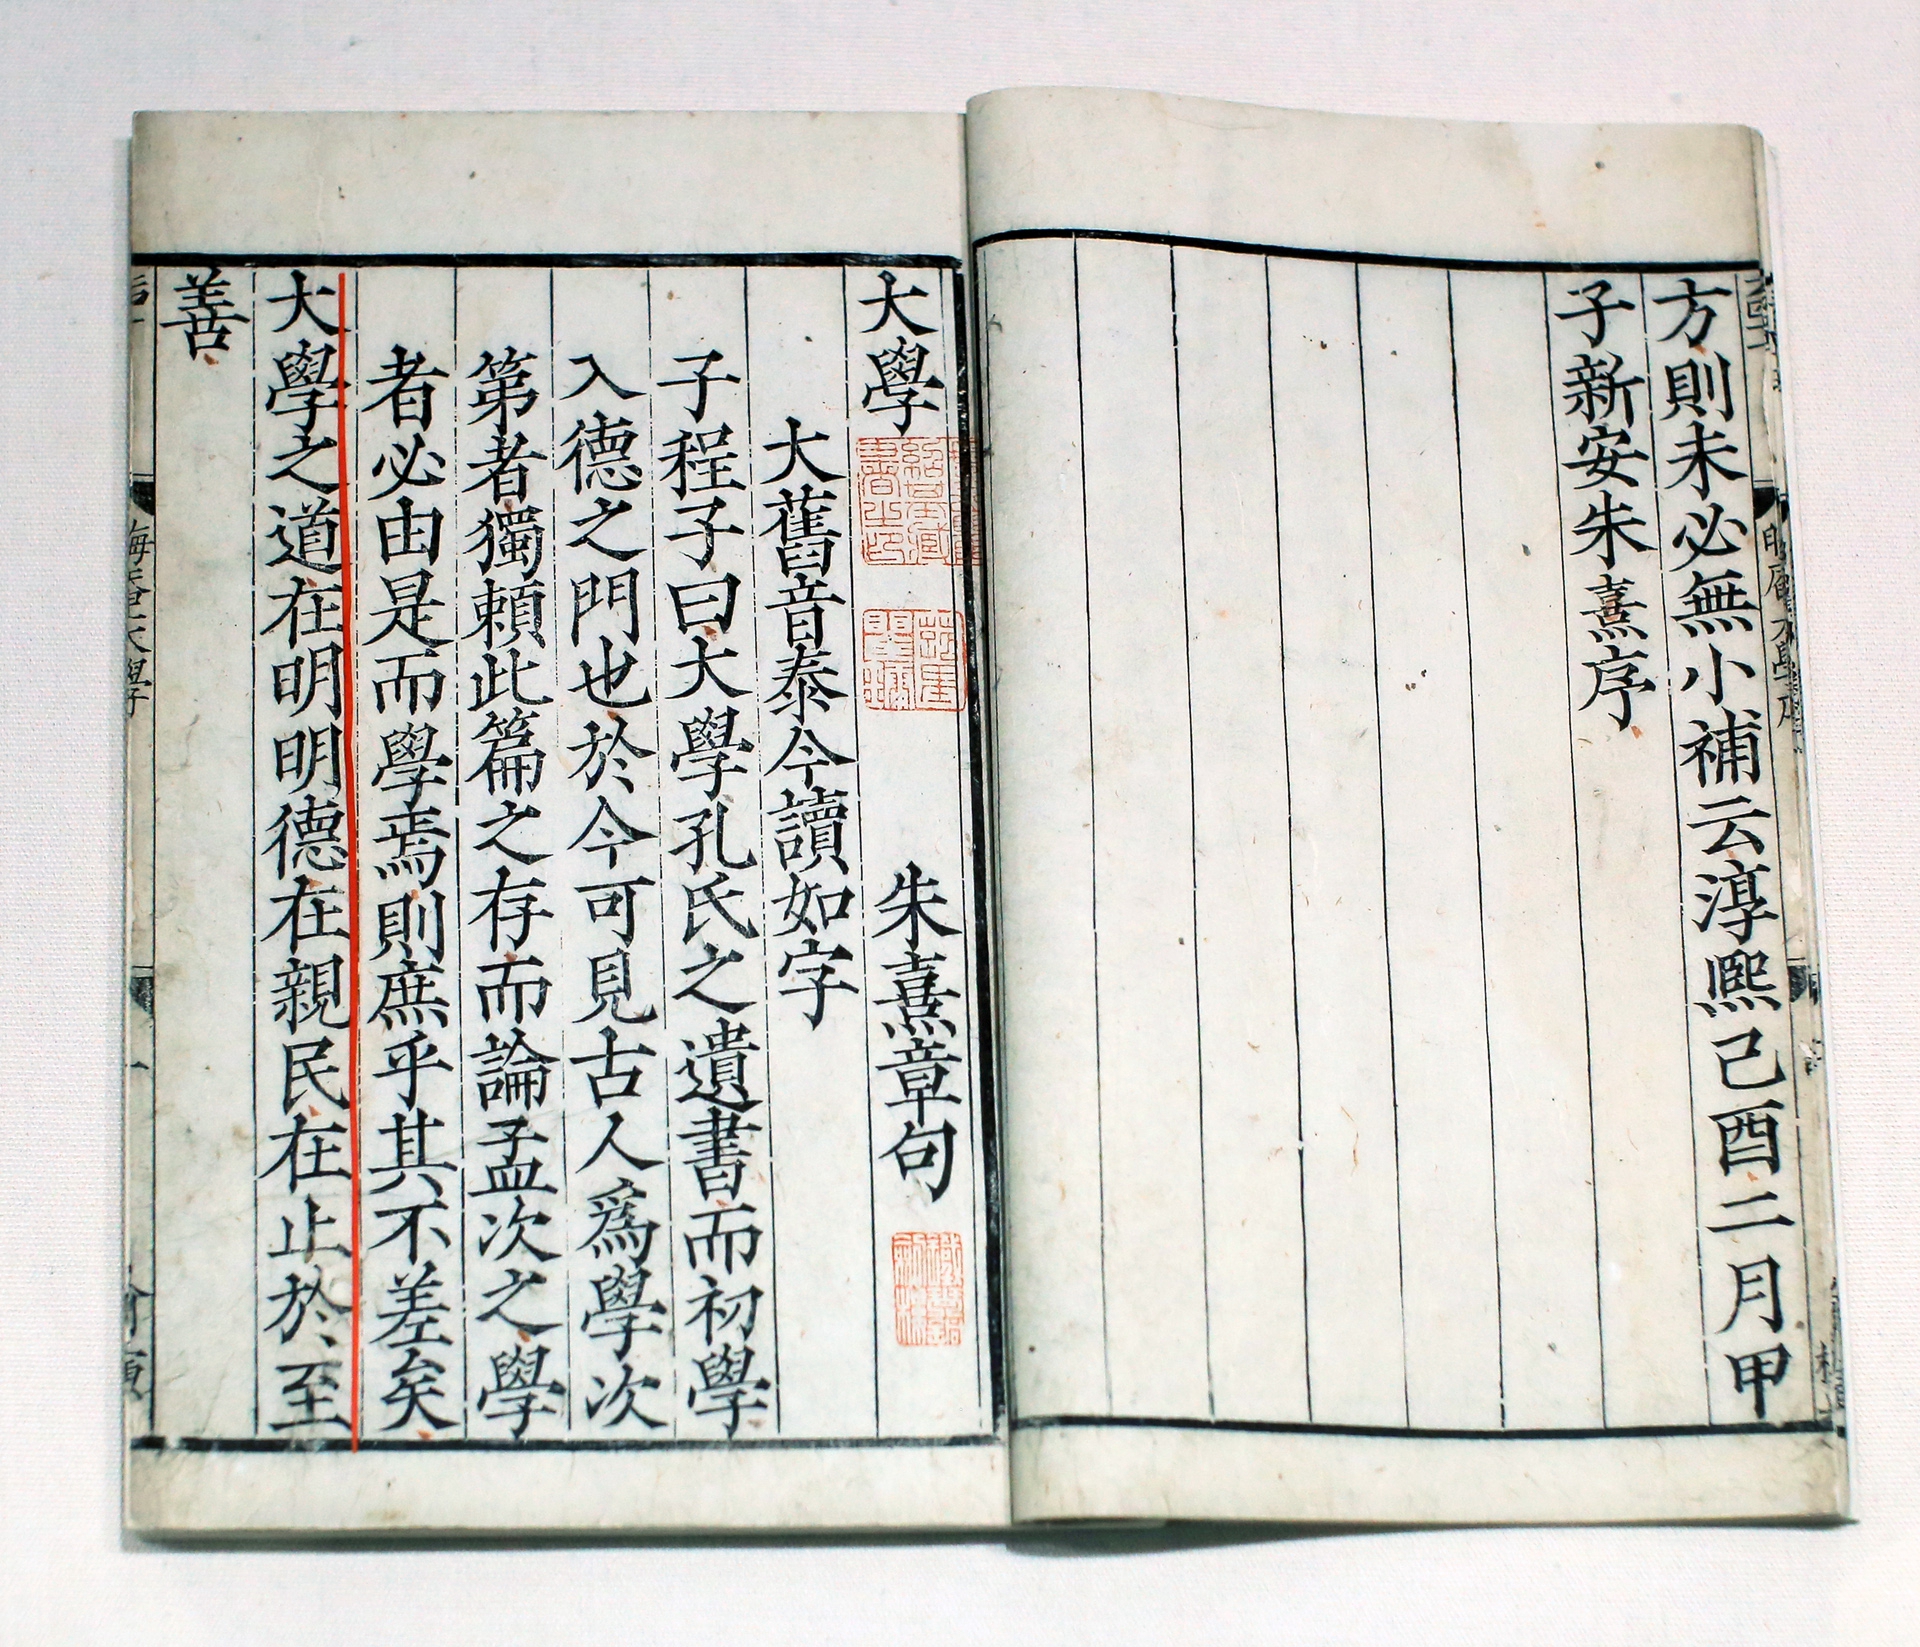 方則未必無小補云淳熙己酉二月甲
子新安朱熹序
大學 朱熹章句
大舊音泰今讀如字
子程子曰大學孔氏之遺書而初學
入德之門也於今可見古人爲學次
第者獨賴此篇之存而論孟次之學
者必由是而學焉則庶乎其不差矣
大學之道在明明德在親民在止於至
善